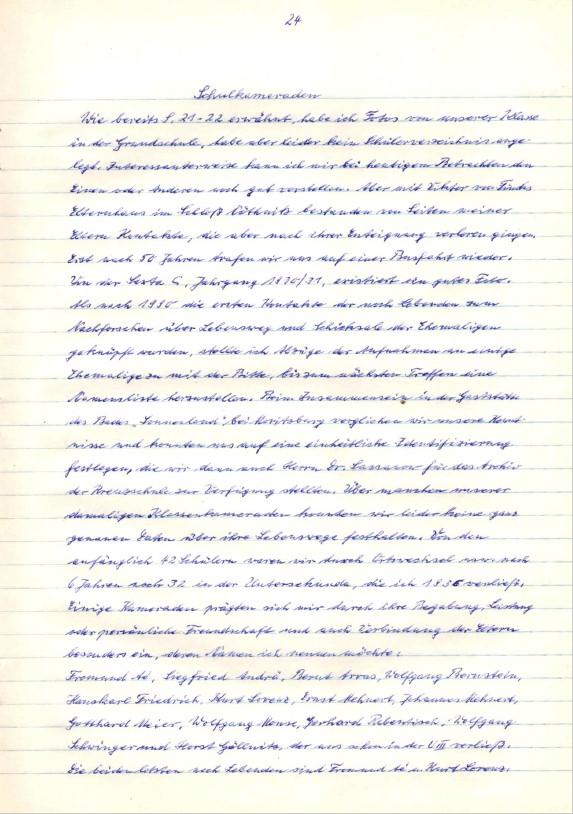 24
Schulkameraden
Wie bereits S. 21-22 erwähnt, habe ich Fotos von unserer Klasse
in der Grundschule, habe aber leider kein Schülerverzeichnis ange-
legt. Interessanterweise kann ich mir bei heutigem Betrachten den
Einen oder Anderen noch gut vorstellen. Aber mit Viktor von
Elternhaus im Schloß bestanden von Seiten meiner
Eltern Kontakte, die aber nach ihrer Enteignung verloren gingen.
Erst nach 50 Jahren trafen wir uns auf einer Busfahrt wieder.
Von der Sexta C, Jahrgang 1930/31, existiert ein gutes Foto.
Als nach 1990 die ersten Kontakte der noch Lebenden zum
Nachforschen über Lebensweg und Schicksale der Ehemaligen
geknüpft wurden, stellte ich Abzüge der Aufnahmen an einige
Ehemalige zu mit der Bitte, bis zum nächsten Treffen eine
Namensliste herzustellen. Beim Zusammensein in der Gaststätte
des Bades "Sonnenland" bei Moritzburg verglichen wir unsere Kennt-
nisse und konnten uns auf eine einheitliche Identifizierung
festlegen, die wir dann auch Herrn Dr. für das Archiv
der Kreuzschule zur Verfügung stellten. Über manchen unserer
damaligen Klassenkameraden konnten wir leider keine ganz
genauen Daten über ihre Lebenswege festhalten. Von den
anfänglich 42 Schülern waren wir durch Ortswechsel usw. nach
6 Jahren noch 32 in der Untersekunda, die ich 1936 verließ.
Einige Kameraden prägten sich mir durch ihre Begabung, Leistung
oder persönliche Freundschaft und auch Verbindung der Eltern
besonders ein, deren Namen ich nennen möchte:
Fromund Siegfried Andrä, Bernd Wolfgang Bernstein,
Hanskarl Friedrich, Kurt Lorenz, Ernst Mehnert, Johannes Mehnert,
Gotthard Meier, Wolfgang Gerhard Wolfgang
Schwinger und Horst Göllnitz, der uns schon in der U III verließ.
Die beiden letzten noch Lebenden sind Fromund u. Kurt Lorenz.